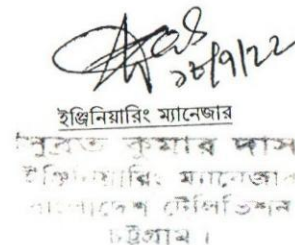 ১৮/৭/২২
ইঞ্জিনিয়ারিং ম্যানেজার
সুব্রত কুমার দাস
ইঞ্জিনিয়ারিং ম্যানেজার
বাংলাদেশ টেলিভিশন
চট্টগ্রাম।